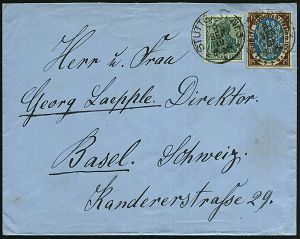 STUTTG
Herr u. Frau
Georg Laepple. Direktor.
Basel. Schweiz.
Kandererstrasse 29.